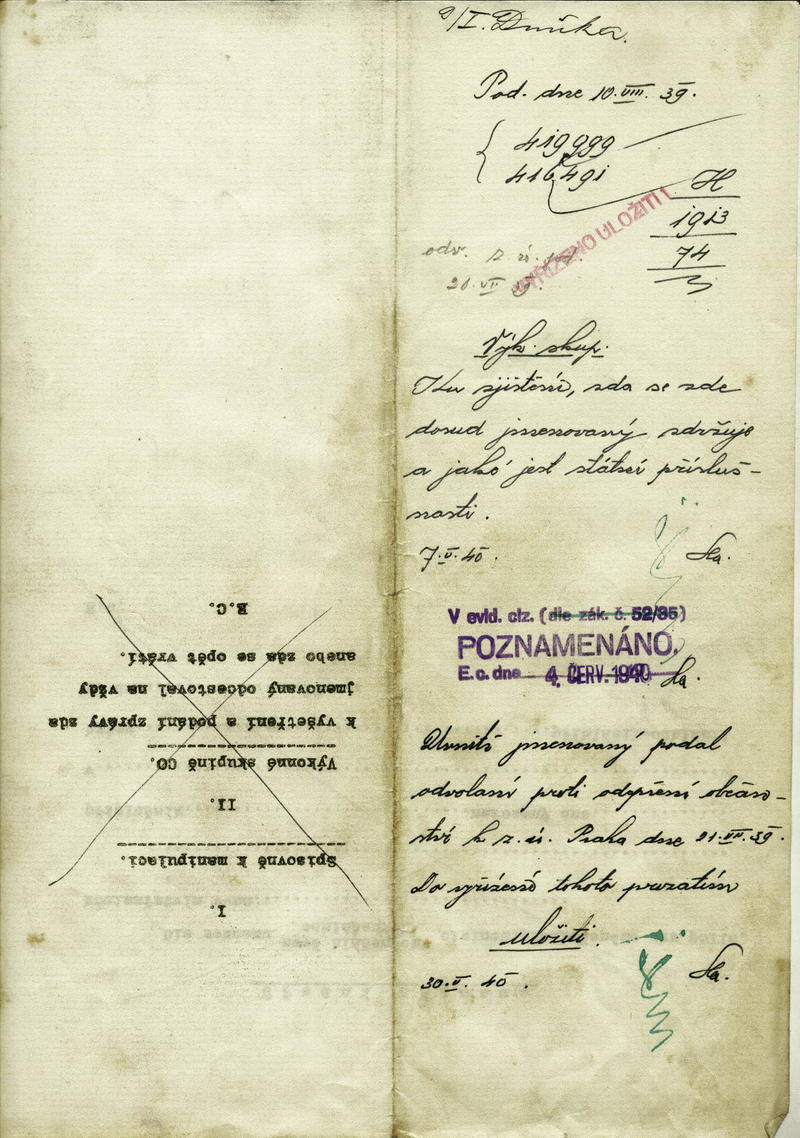 Pod. dne 10.VIII. 39.
419999
416491
H
1913
74
VYŘÍZENO ULOŽITI!
odv. z. ú.
Výk. skup.
Ku zjištění, zda se zde
dosud jmenovaný zdržuje
a jaké jest státní přísluš-
nosti.
7.V.40.
V evid. ciz. (dle zák. č. 52/35)
POZNAMENÁNO.
E. c. dne 4. ČERV. 1940
Uvnitř jmenovaný podal
odvolání proti odepření občan-
ství k z. ú. Praha dne 21.VII.39.
Do vyřízení tohoto prozatím
uložiti.
30.V. 40.
I.
Spisovně k manipulaci.
II.
Výkonné skupině CO.
k vyšetření a podání zprávy zda
jmenovaný odcestoval na vždy
anebo zda se opět vrátí.
B.C.